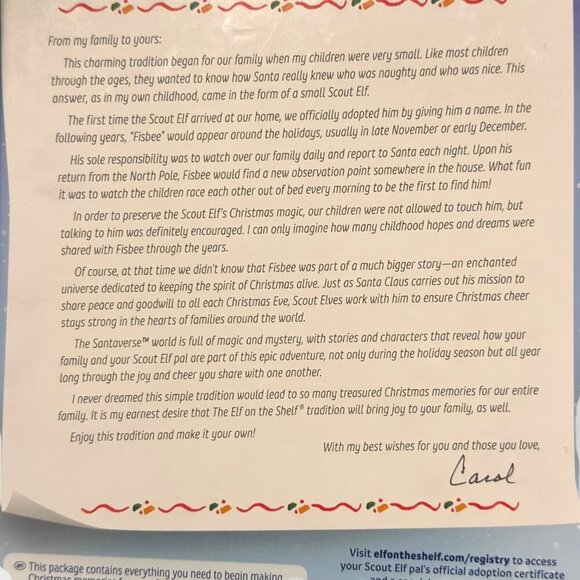 From my family to yours:
This charming tradition began for our family when my children were very small. Like most children
through the ages, they wanted to know how Santa really knew who was naughty and who was nice. This
answer, as in my own childhood, came in the form of a small Scout Elf.
The first time the Scout Elf arrived at our home, we officially adopted him by giving him a name. In the
following years, "Fisbee" would appear around the holidays, usually in late November or early December.
His sole responsibility was to watch over our family daily and report to Santa each night. Upon his
return from the North Pole, Fisbee would find a new observation point somewhere in the house. What fun
it was to watch the children race each other out of bed every morning to be the first to find him!
In order to preserve the Scout Elf's Christmas magic, our children were not allowed to touch him, but
talking to him was definitely encouraged. I can only imagine how many childhood hopes and dreams were
shared with Fisbee through the years.
Of course, at that time we didn't know that Fisbee was part of a much bigger story—an enchanted
universe dedicated to keeping the spirit of Christmas alive. Just as Santa Claus carries out his mission to
share peace and goodwill to all each Christmas Eve, Scout Elves work with him to ensure Christmas cheer
stays strong in the hearts of families around the world.
The Santaverse™ world is full of magic and mystery, with stories and characters that reveal how your
family and your Scout Elf pal are part of this epic adventure, not only during the holiday season but all year
long through the joy and cheer you share with one another.
I never dreamed this simple tradition would lead to so many treasured Christmas memories for our entire
family. It is my earnest desire that The Elf on the Shelf® tradition will bring joy to your family, as well.
Enjoy this tradition and make it your own!
With my best wishes for you and those you love,
Carol
This package contains everything you need to begin making
Christmas memories
Visit elfontheshelf.com/registry to access
your Scout Elf pal's official adoption certificate